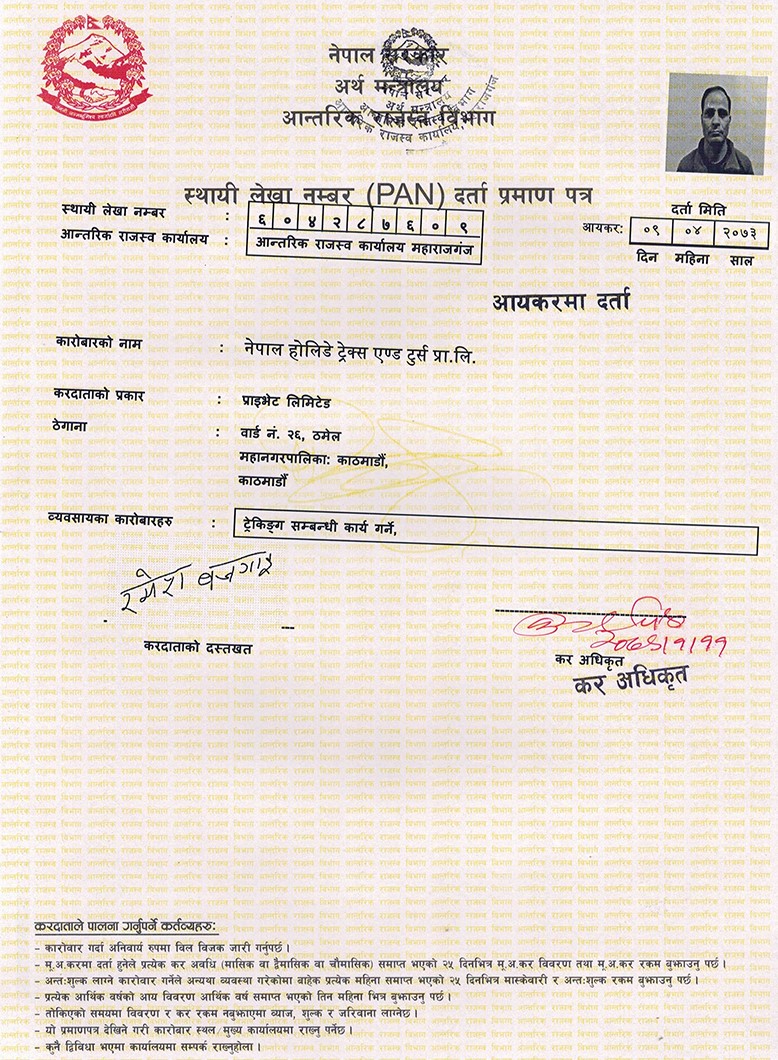 नेपाल सरकार
अर्थ मन्त्रालय
आन्तरिक राजस्व विभाग
स्थायी लेखा नम्बर (PAN) दर्ता प्रमाण पत्र
स्थायी लेखा नम्बर : ६ ० ४ २ ८ ७ ६ ० ९
दर्ता मिति
आन्तरिक राजस्व कार्यालय : आन्तरिक राजस्व कार्यालय महाराजगंज
आयकर: ०९ ०४ २०७३
दिन महिना साल
आयकरमा दर्ता
कारोबारको नाम : नेपाल होलिडे ट्रेक्स एण्ड टुर्स प्रा.लि.
करदाताको प्रकार : प्राइभेट लिमिटेड
ठेगाना : वार्ड नं. २६, ठमेल
महानगरपालिका: काठमाडौं,
काठमाडौं
व्यवसायका कारोबारहरु : ट्रेकिङ्ग सम्बन्धी कार्य गर्ने,
रमेश बजगाई
करदाताको दस्तखत
कर अधिकृत
कर अधिकृत
करदाताले पालना गर्नुपर्ने कर्तव्यहरु:
- कारोवार गर्दा अनिवार्य रुपमा विल विजक जारी गर्नुपर्छ ।
- मू.अ.करमा दर्ता हुनेले प्रत्येक कर अवधि (मासिक वा द्वैमासिक वा चौमासिक) समाप्त भएको २५ दिनभित्र मू.अ.कर विवरण तथा मू.अ.कर रकम बुझाउनु पर्छ ।
- अन्तःशुल्क लाग्ने कारोवार गर्नेले अन्यथा व्यवस्था गरेकोमा बाहेक प्रत्येक महिना समाप्त भएको २५ दिनभित्र मास्केवारी र अन्तःशुल्क रकम बुझाउनु पर्छ ।
- प्रत्येक आर्थिक वर्षको आय विवरण आर्थिक वर्ष समाप्त भएको तिन महिना भित्र बुझाउनु पर्छ ।
- तोकिएको समयमा विवरण र कर रकम नबुझाएमा व्याज, शुल्क र जरिवाना लाग्नेछ ।
- यो प्रमाणपत्र देखिने गरी कारोवार स्थल/मुख्य कार्यालयमा राख्नु पर्नेछ ।
- कुनै द्विविधा भएमा कार्यालयमा सम्पर्क राख्नुहोला ।